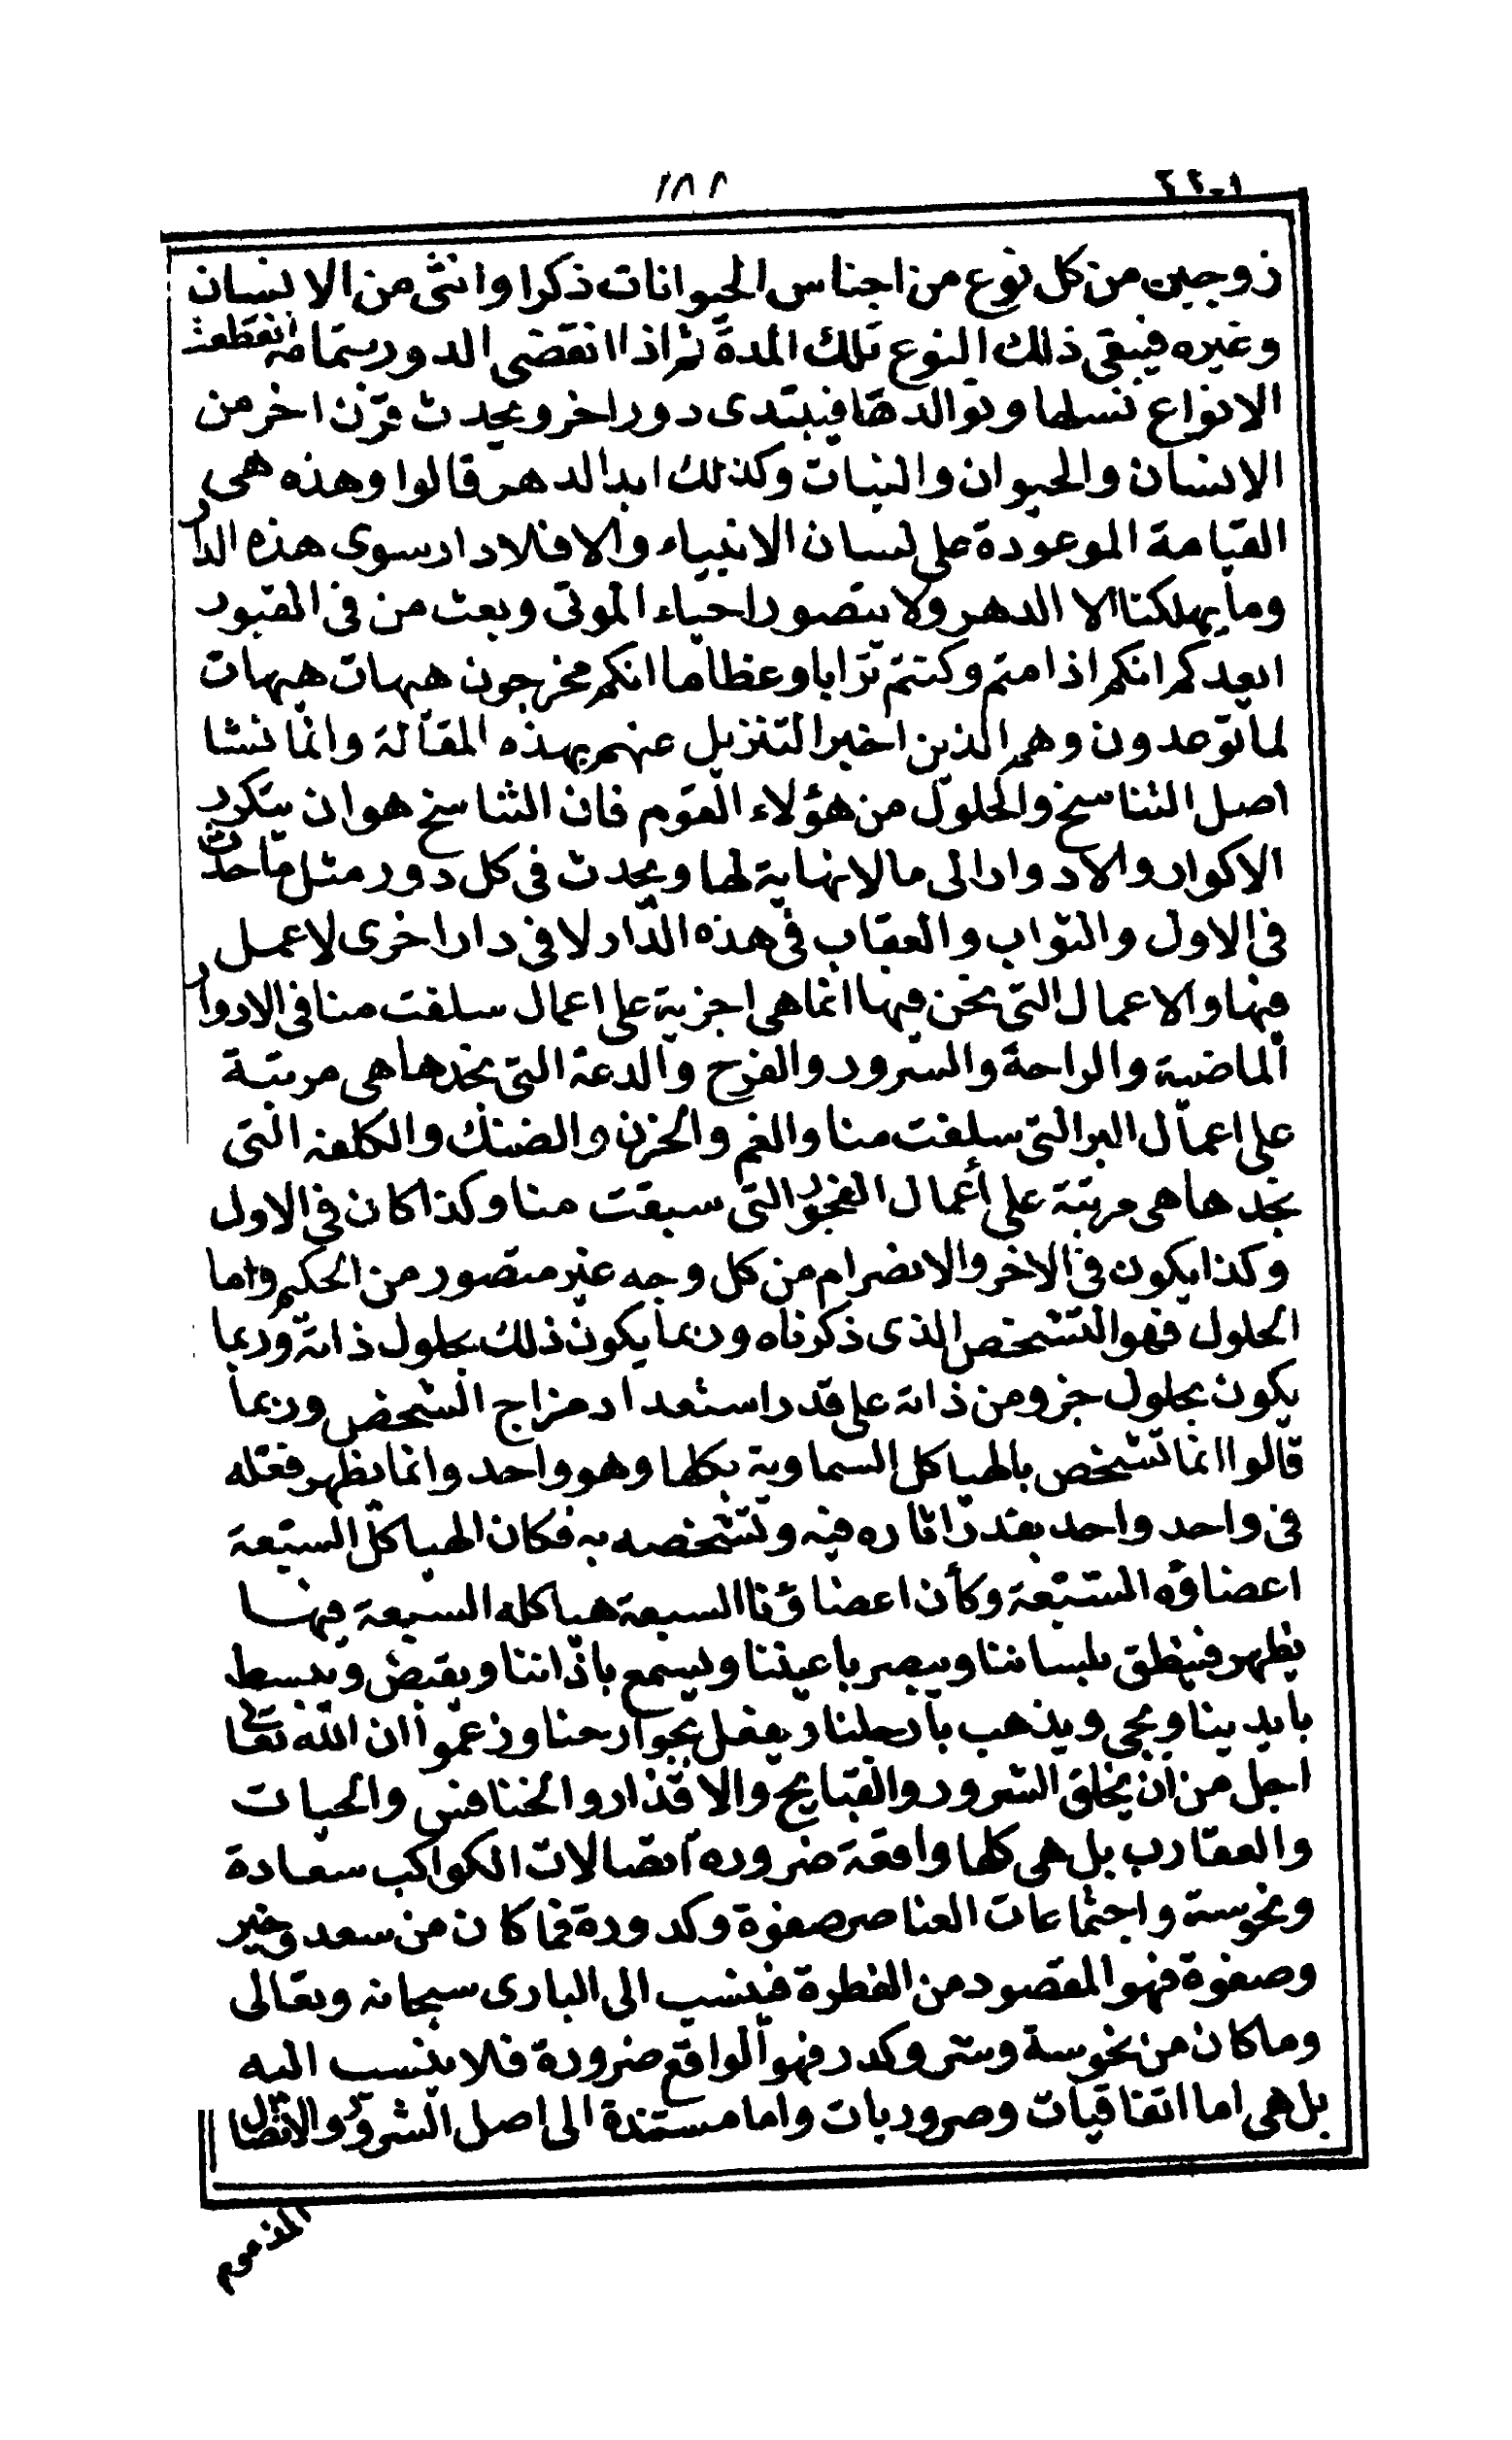 ١٨٢
زوجين من كل نوع من اجناس الحيوانات ذكرا وانثى من الانسان
وغيره فيبقى ذلك النوع تلك المدة ثم اذا انقضى الدور بتمامه انقطعت
الانواع نسلها وتوالدها فيبتدى دور اخر ويحدث قرن اخر من
الانسان والحيوان والنبات وكذلك ابد الدهر قالوا وهذه هى
القيامة الموعودة على لسان الانبياء والا فلا دار سوى هذه الدار
وما يهلكنا الا الدهر ولا يتصور احياء الموتى وبعث من فى القبور
ايعدكم انكم اذا متم وكنتم ترابا وعظاما انكم مخرجون هيهات هيهات
لما توعدون وهم الذين اخبر التنزيل عنهم بهذه المقالة وانما نشا
اصل التناسخ والحلول من هؤلاء القوم فان التناسخ هو ان يتكرر
الاكوار والادوار الى ما لا نهاية لها ويحدث فى كل دور مثل ما حدث
فى الاول والثواب والعقاب فى هذه الدار لا فى دار اخرى لا عمل
فيها والاعمال التى نحن فيها انما هى اجزية على اعمال سلفت منا فى الادوار
الماضية والراحة والسرور والفرح والدعة التى نجدها هى مرتبة
على اعمال البر التى سلفت منا والغم والحزن والضنك والكلفة التى
نجدها هى مرتبة على أعمال الفجور التى سبقت منا وكذا كان فى الاول
وكذا يكون فى الاخر والانصرام من كل وجه غير متصور من الحكيم واما
الحلول فهو التشخص الذى ذكرناه وربما يكون ذلك بحلول ذاته وربما
يكون بحلول جزو من ذاته على قدر استعداد مزاج الشخص وربما
قالوا انما تشخص بالهياكل السماوية بكلها وهو واحد وانما يظهر فعله
فى واحد واحد بقدر اثاره فيه وتشخصه به فكان الهياكل السبعة
اعضاؤه السبعة وكأن اعضاؤنا السبعة هياكله السبعة فيها
يظهر فينطق بلساننا ويبصر باعيننا ويسمع باذاننا ويقبض ويبسط
بايدينا ويجى ويذهب بارجلنا ويفعل بجوارحنا وزعموا ان الله تعالى
اجل من ان يخلق الشرور والقبايح والاقذار والخنافس والحيات
والعقارب بل هى كلها واقعة ضرورة اتصالات الكواكب سعادة
ونحوسة واجتماعات العناصر صفوة وكدورة فما كان من سعد وخير
وصفوة فهو المقصود من الفطرة فينسب الى البارى سبحانه وتعالى
وما كان من نحوسة وشر وكدر فهو الواقع ضرورة فلا ينسب اليه
بل هى اما اتفاقيات وضروريات واما مستندة الى اصل الشرور والاتصال
المذموم